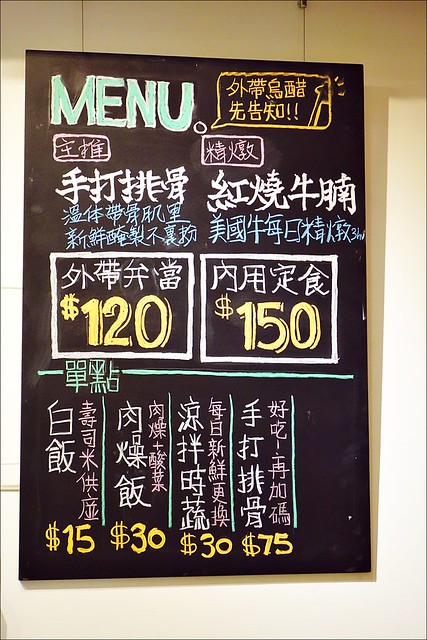 MENU
外帶烏醋
先告知!!
主推
手打排骨
溫体帶骨肌里
新鮮醃製不裹粉
精燉
紅燒牛腩
美國牛每日精燉3hr
外帶弁當
$120
內用定食
$150
單點
白飯
壽司米供应
$15
肉燥飯
肉燥+酸菜
$30
涼拌時蔬
每日新鮮更換
$30
手打排骨
好吃~再加碼
$75